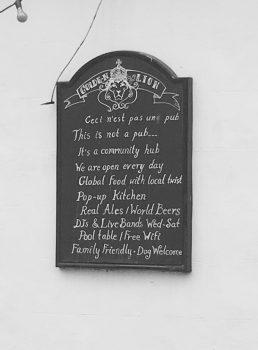 GOLDEN LION
Ceci n'est pas une pub
This is not a pub...
It's a community hub
We are open every day
Global food with local twist
Pop-up Kitchen
Real Ales/World Beers
DJs & Live Bands Wed-Sat
Pool table/Free Wifi
Family Friendly · Dog Welcome